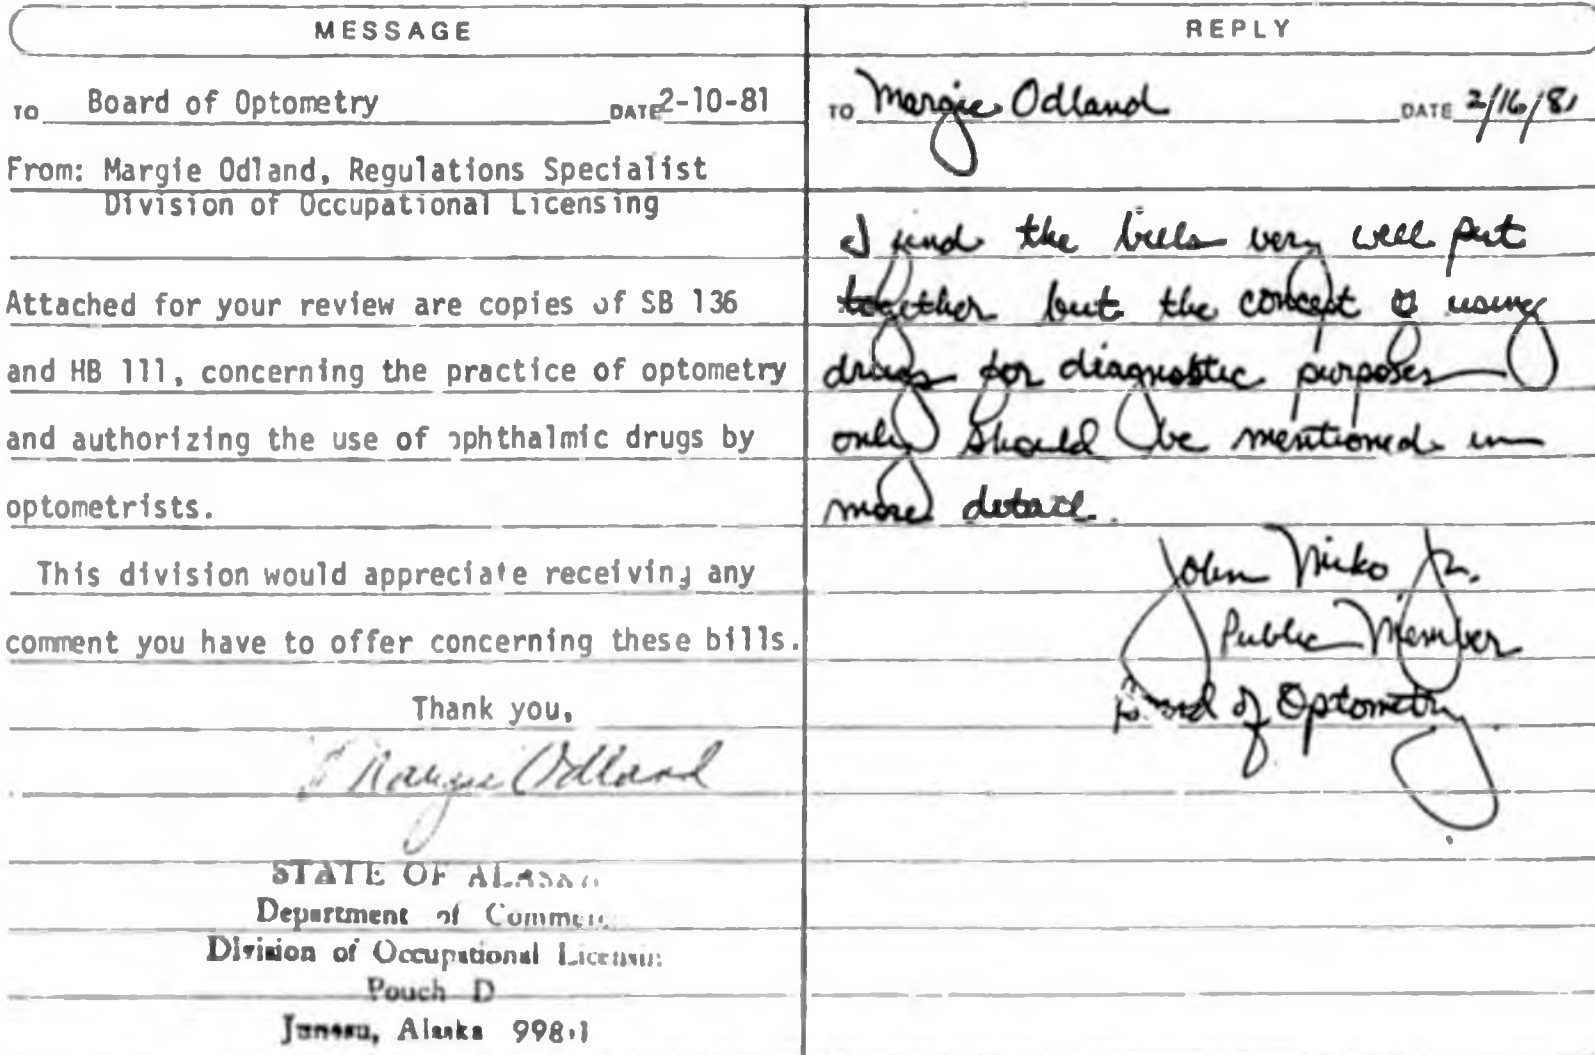 MESSAGE
TO Board of Optometry DATE 2-10-81
From: Margie Odland, Regulations Specialist
Division of Occupational Licensing
Attached for your review are copies of SB 136
and HB 111, concerning the practice of optometry
and authorizing the use of ophthalmic drugs by
optometrists.
This division would appreciate receiving any
comment you have to offer concerning these bills.
Thank you,
Margie Odland
STATE OF ALASKA
Department of Commerce
Division of Occupational Licensing
Pouch D
Juneau, Alaska
REPLY
TO Margie Odland DATE 2/16/81
I find the bills very well put
together but the concept of using
drugs for diagnostic purposes
only should be mentioned in
more detail.
John Niko Jr.
Public Member
Board of Optometry